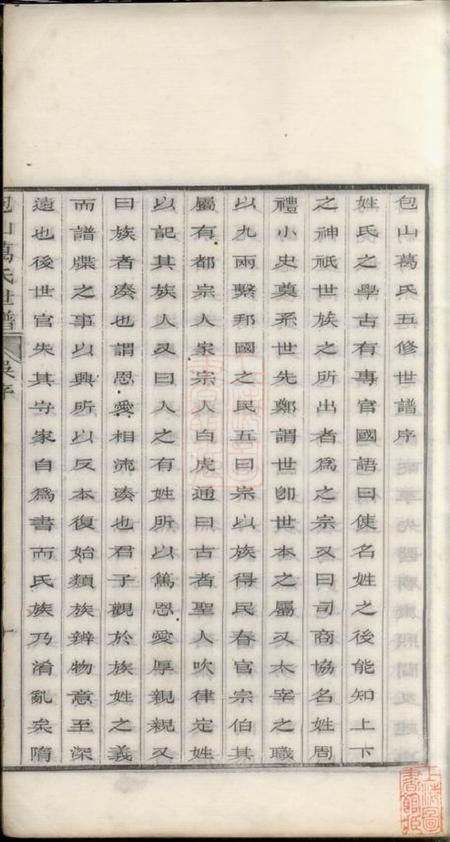 包山葛氏五修世譜序
姓氏之學古有專官國語曰使名姓之後能知上下
之神祇世族之所出者爲之宗又曰司商協名姓周
禮小史奠系世先鄭謂世卽世本之屬又太宰之職
以九兩繫邦國之民五曰宗以族得民春官宗伯其
屬有都宗人家宗人白虎通曰古者聖人吹律定姓
以記其族人又曰人之有姓所以篤恩愛厚親親又
曰族者湊也謂恩愛相流湊也君子觀於族姓之義
而譜牒之事以興所以反本復始類族辨物意至深
遠也後世官失其守家自爲書而氏族乃淆亂矣隋
包山葛氏世譜 吳序 一
上海圖書館藏